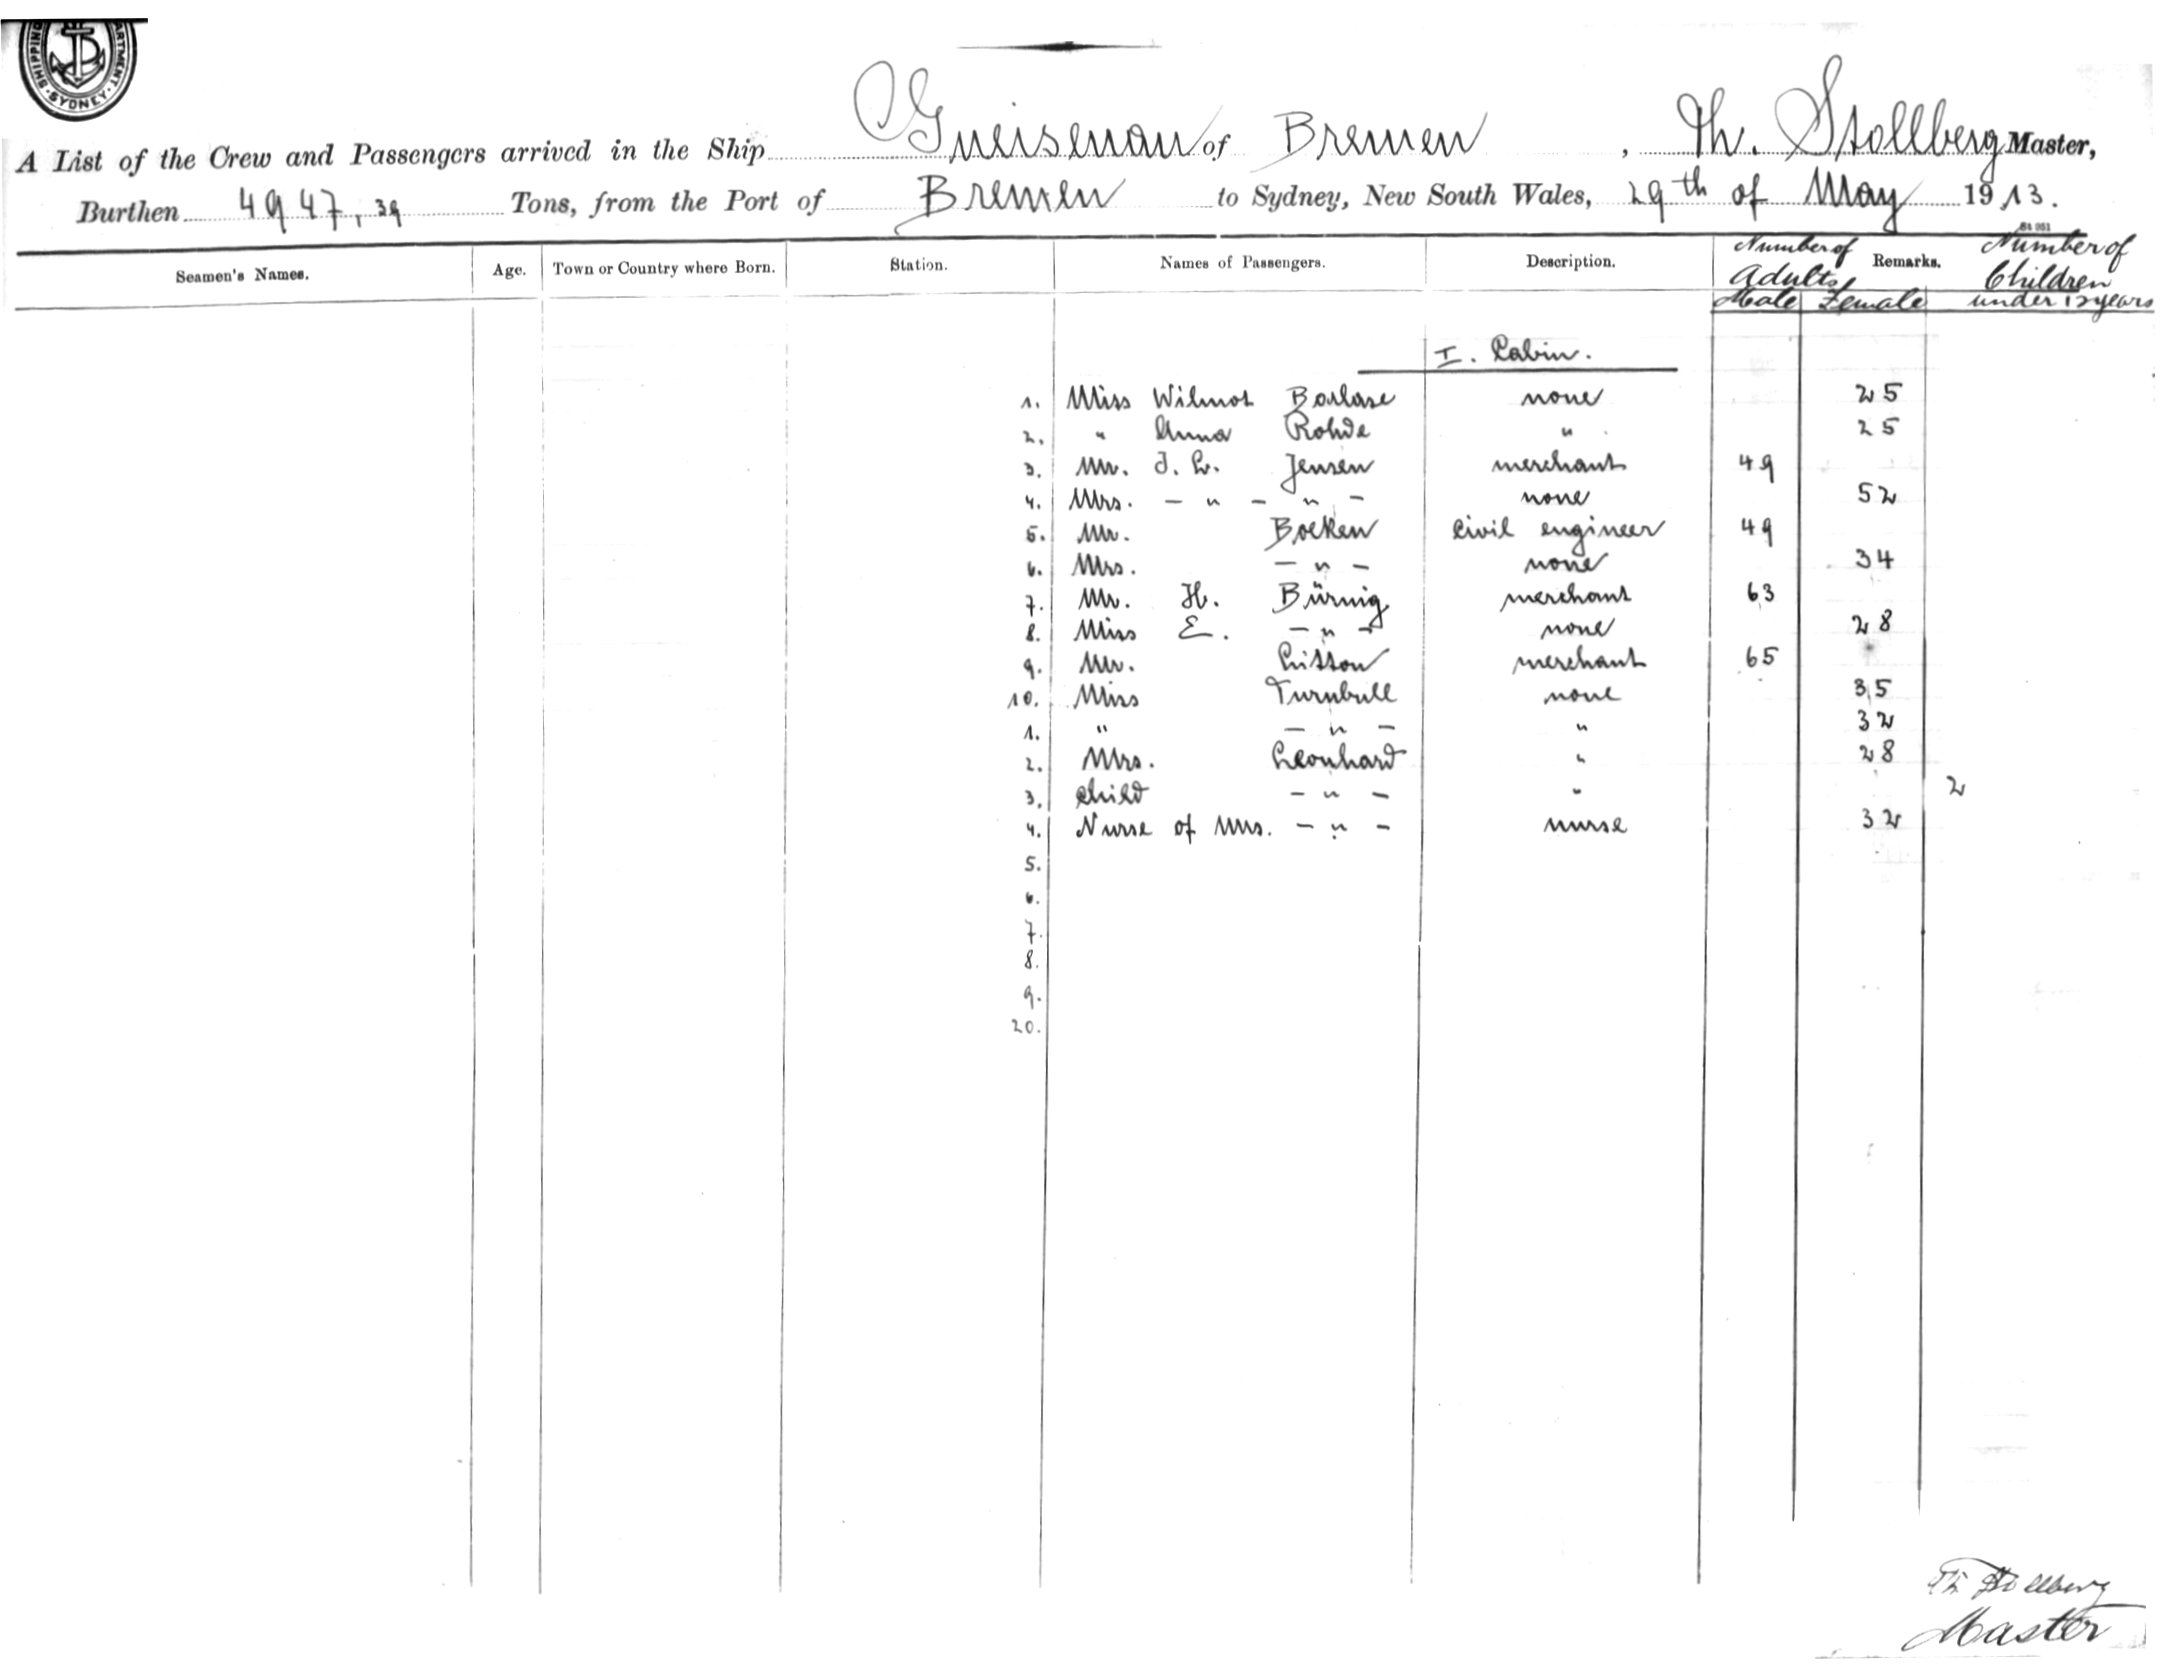 SHIPPING ARTMENT · SYDNEY ·
A List of the Crew and Passengers arrived in the Ship Gneisenau of Bremen, Th. Stollberg Master,
Burthen 4947,39 Tons, from the Port of Bremen to Sydney, New South Wales, 29th of May 1913.
Seamen's Names. Age. Town or Country where Born. Station. Names of Passengers. Description. Number of Adults Male Female Remarks. Number of Children under 12 years
I. Cabin.
1. Miss Wilmot Borlase none 25
2. " Anna Rohde " 25
3. Mr. J. L. Jensen merchant 49
4. Mrs. – " – " – none 52
5. Mr. Boeken Civil engineer 49
6. Mrs. – " – none 34
7. Mr. H. Bürnig merchant 63
8. Miss E. – " – none 28
9. Mr. Litton merchant 65
10. Miss Turnbull none 35
1. " – " – " 32
2. Mrs. Leonhard " 28
3. child – " – " 2
4. Nurse of Mrs. – " – nurse 32
5.
6.
7.
8.
9.
20.
Th Stollberg
Master